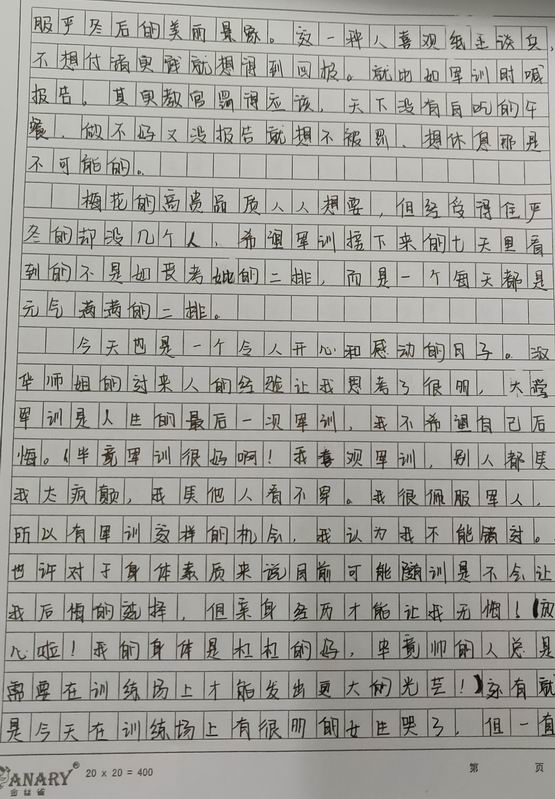 服严冬后的美丽景象。这一种人喜欢纸上谈兵，
不想付诸实践就想得到回报。就比如军训时喊
报告。其实教官骂得应该，天下没有白吃的午
餐，做不好又没报告就想不被罚、想休息那是
不可能的。
梅花的高贵品质人人想要，但经受得住严
冬的却没几个人，希望军训接下来的七天里看
到的不是如丧考妣的二排，而是一个每天都是
元气满满的二排。
今天也是一个令人开心和感动的日子。淑
华师姐的过来人的经验让我思考了很多，大学
军训是人生的最后一次军训，我不希望自己后
悔。（毕竟军训很好啊！我喜欢军训，别人都笑
我太疯颠，我笑他人看不穿。我很佩服军人，
所以有军训这样的机会，我认为我不能错过。
也许对于身体素质来说目前可能随训是不会让
我后悔的选择，但亲身经历才能让我无悔！（放
心啦！我的身体是杠杠的好，毕竟帅的人总是
需要在训练场上才能发出更大的光芒！）还有就
是今天在训练场上有很多的女生哭了，但一直
ANARY 20×20=400 第 页